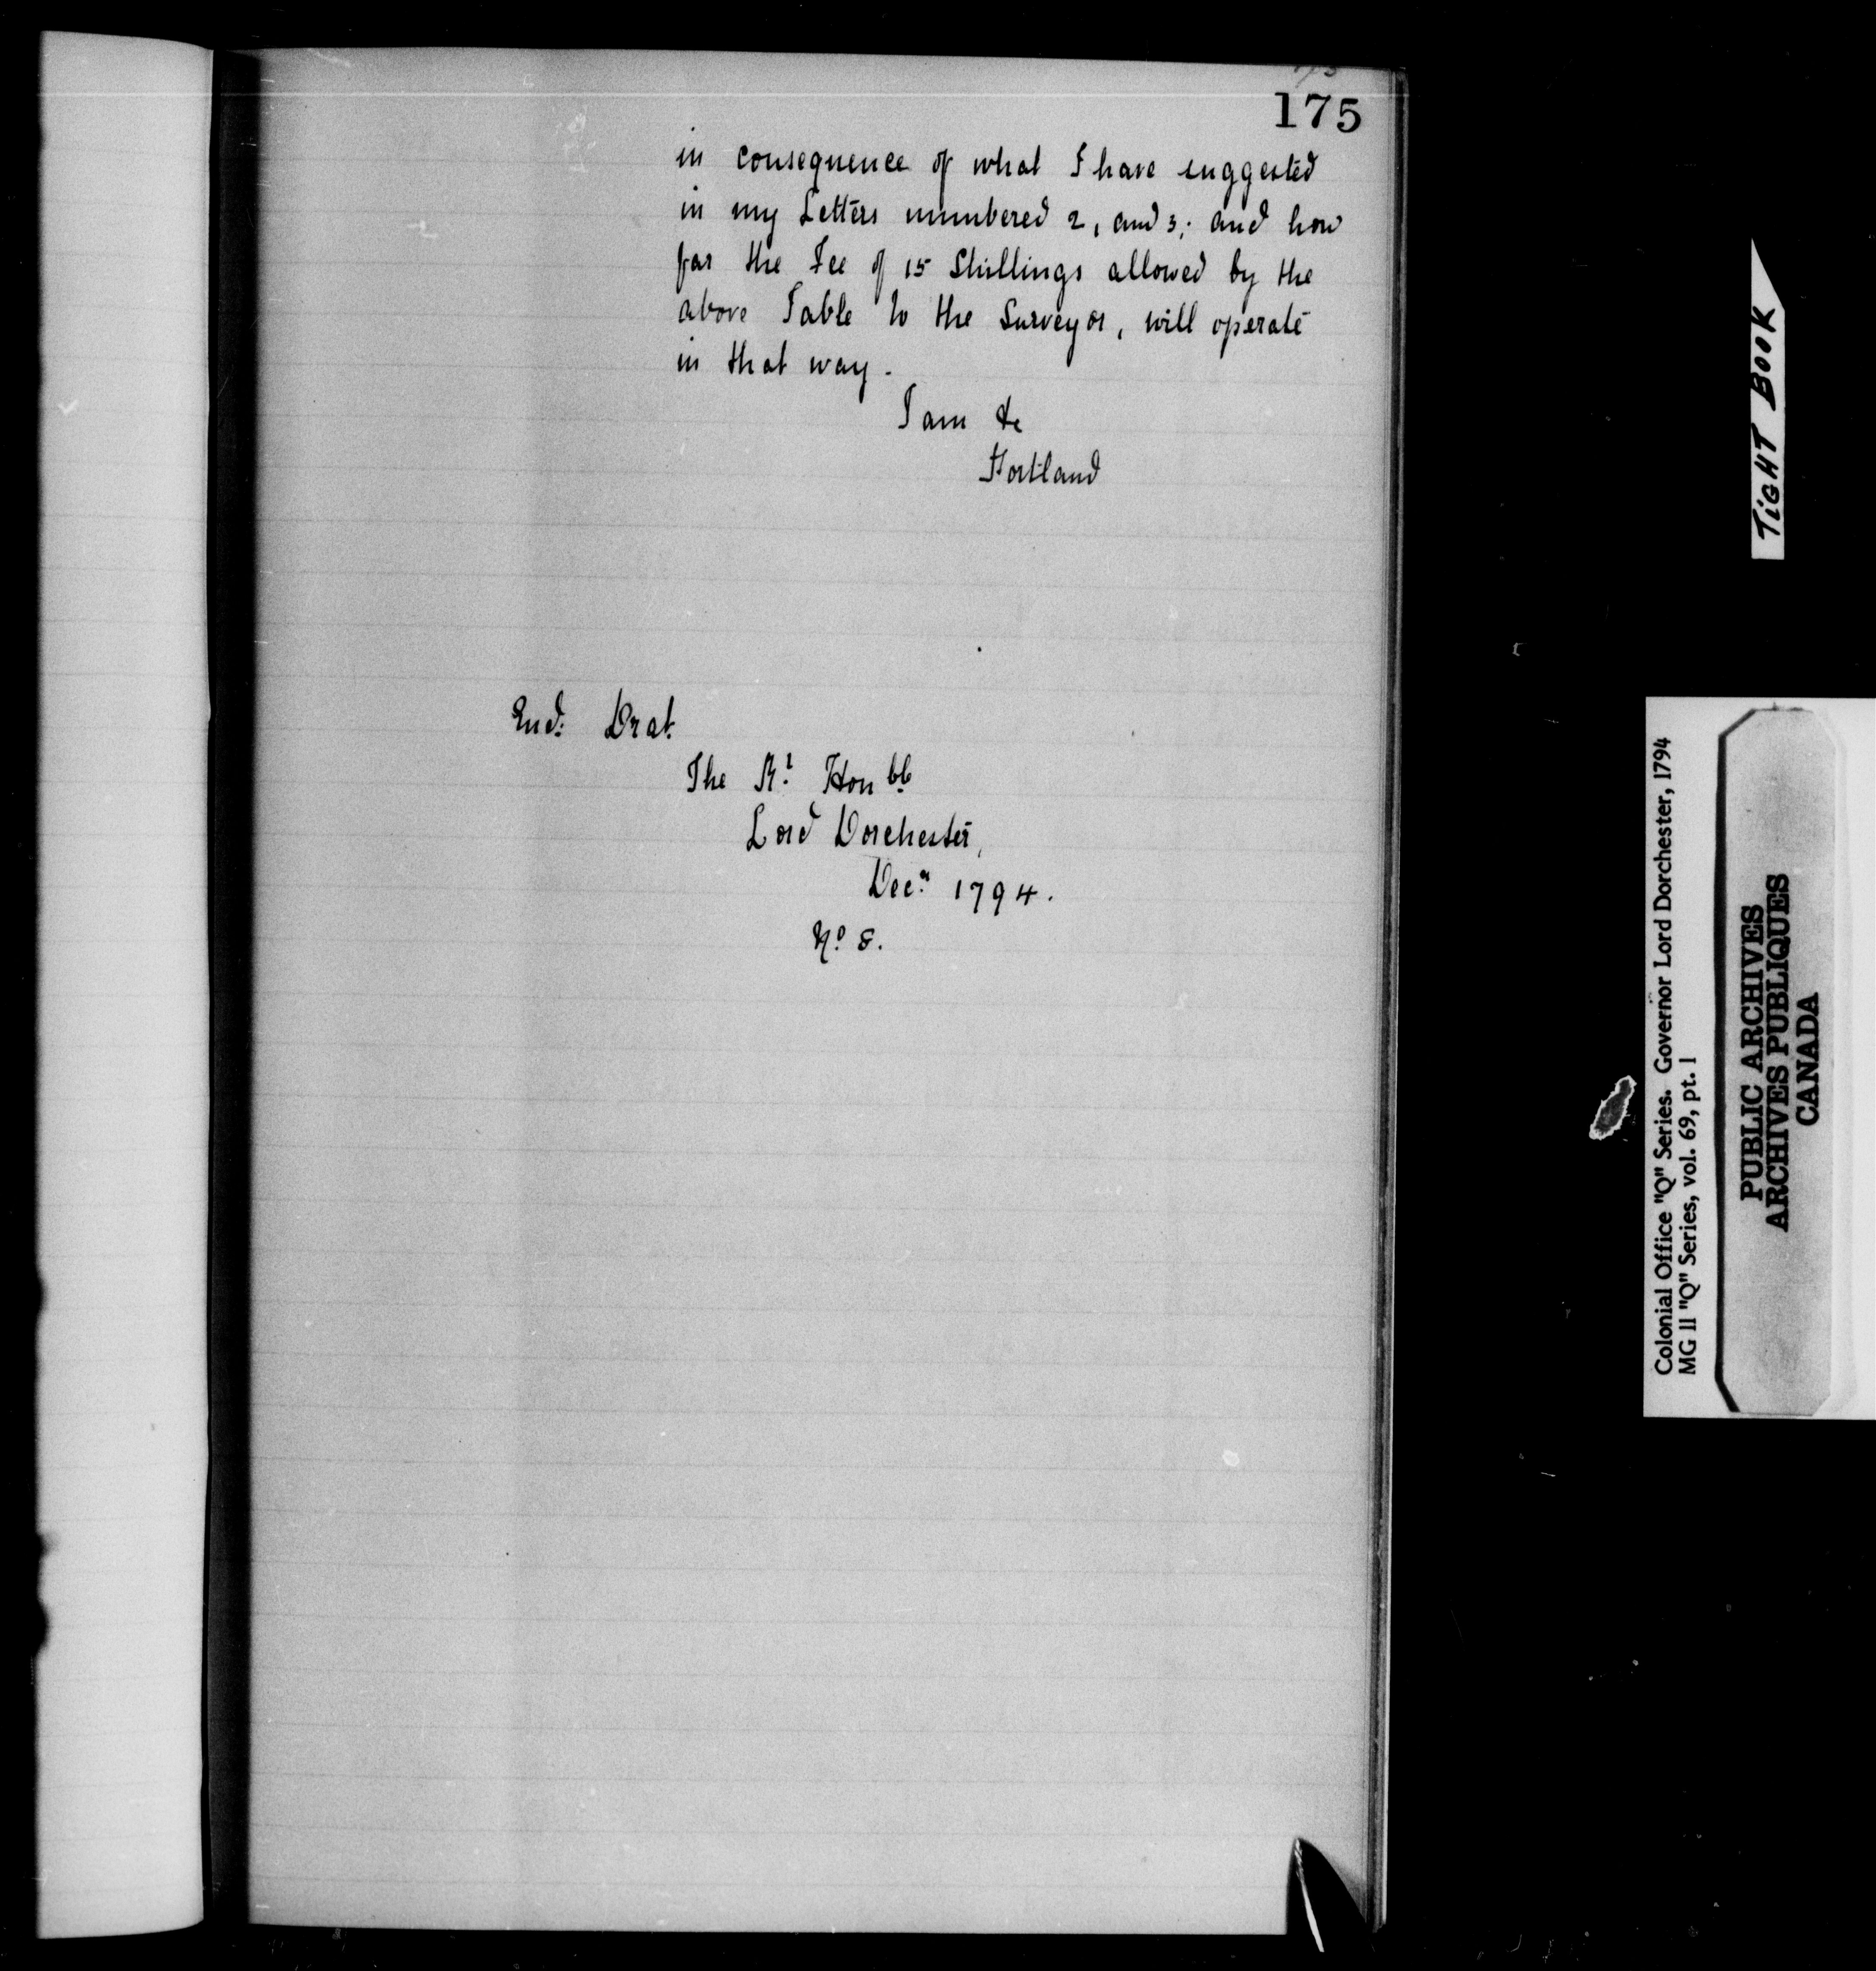 175
in consequence of what I have suggested
in my Letters numbered 2, and 3; and how
far the Fee of 15 Shillings allowed by the
above Table to the Surveyor, will operate
in that way.
I am &c
Portland
End: Drat.
The Rt Honble
Lord Dorchester,
Decr 1794.
No 8.
TIGHT BOOK
Colonial Office "Q" Series. Governor Lord Dorchester, 1794
MG 11 "Q" Series, vol. 69, pt. 1
PUBLIC ARCHIVES
ARCHIVES PUBLIQUES
CANADA